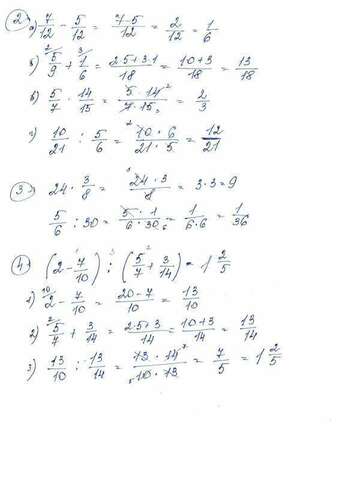 2. а) 7/12 - 5/12 = 7-5/12 = 2/12 = 1/6
б) 5/9 + 1/6 = 2·5+3·1/18 = 10+3/18 = 13/18
в) 5/7 · 14/15 = 5·14/7·15 = 2/3
г) 10/21 : 5/6 = 10·6/21·5 = 12/21
3. 24 · 3/8 = 24·3/8 = 3·3 = 9
5/6 : 30 = 5·1/6·30 = 1/6·6 = 1/36
4. (2 - 7/10) : (5/7 + 3/14) = 1 2/5
1) 2 - 7/10 = 20-7/10 = 13/10
2) 5/7 + 3/14 = 2·5+3/14 = 10+3/14 = 13/14
3) 13/10 : 13/14 = 13·14/10·13 = 7/5 = 1 2/5